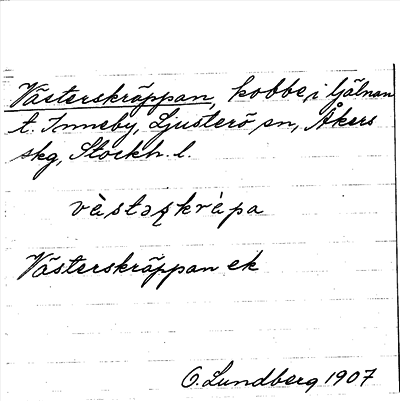 Västerskräppan, kobbe, i Gälnan
t. Inneby, Ljusterö sn, Åkers
skg, Stockh. l.
vàstəʂkrȧpa
Västerskräppan ek
O. Lundberg 1907